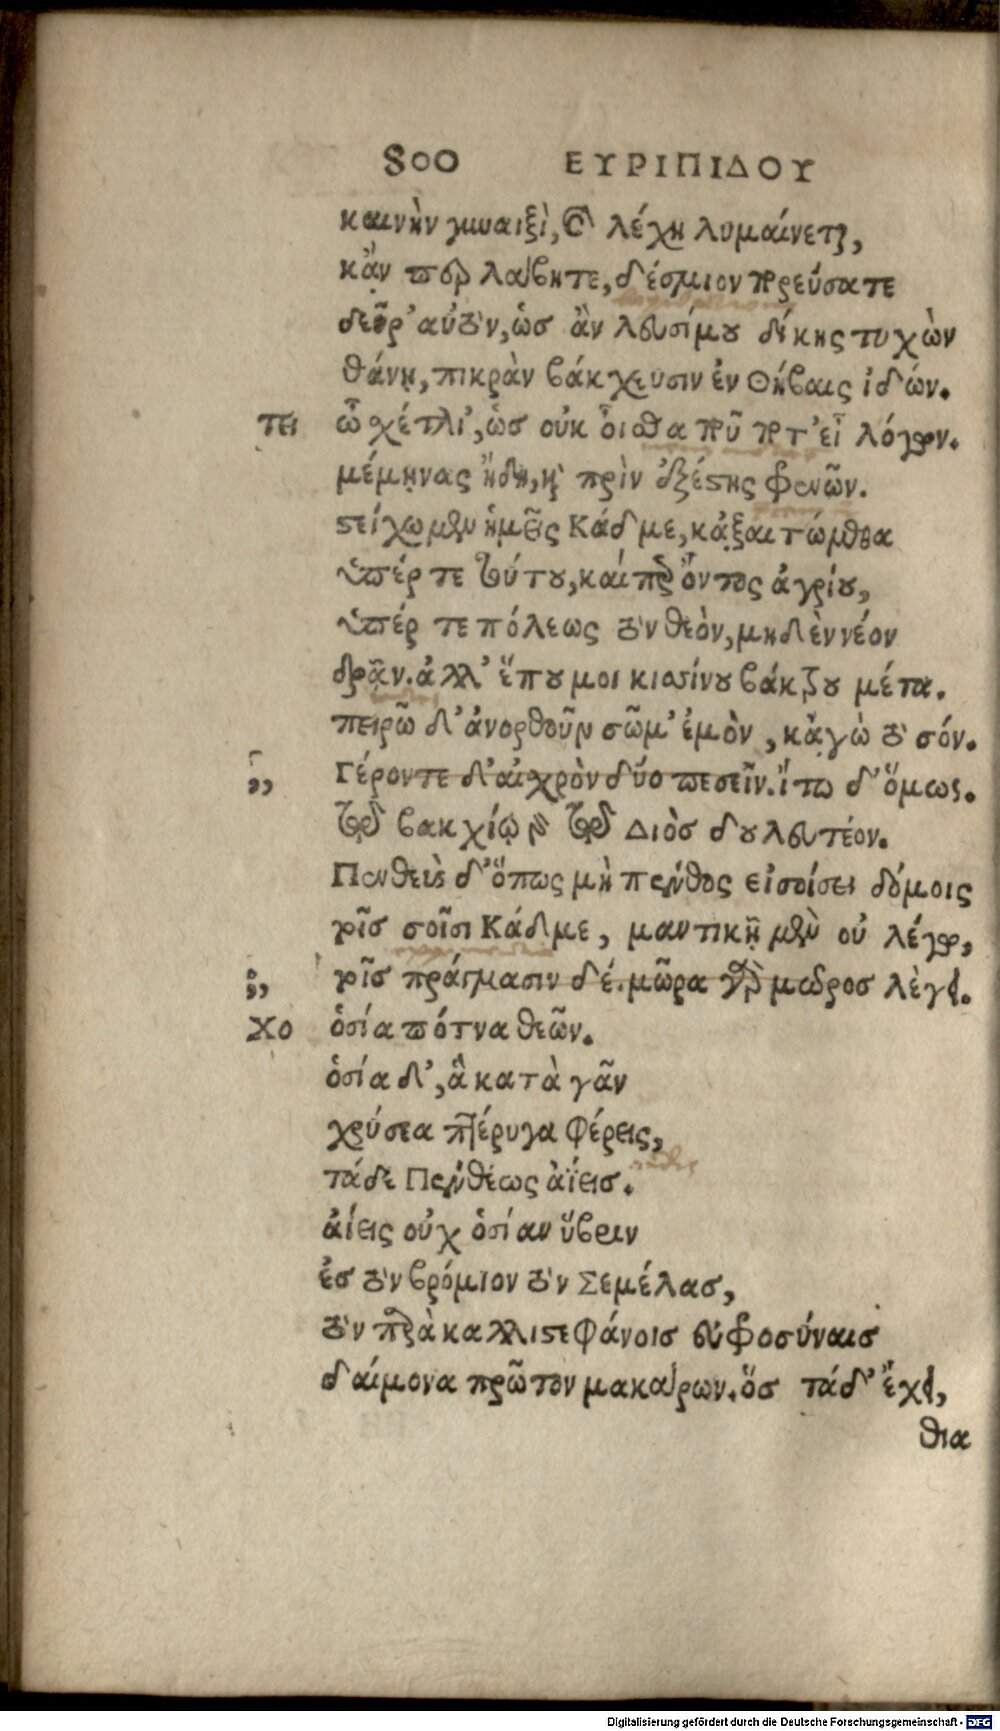 800 ΕΥΡΙΠΙΔΟΥ
καινὴν γυναιξὶ, καὶ λέχη λυμαίνεται,
κἄν περ λάβητε, δέσμιον πορεύσατε
δεῦρ' αὐτὸν, ὡσ ἂν λευσίμου δίκης τυχὼν
θάνῃ, πικρὰν βάκχευσιν ἐν Θήβαις ἰδών.
τει ὦ σχέτλι', ὡσ οὐκ οἶσθα ποῦ ποτ' εἶ λόγων.
μέμηνας ἤδη, καὶ πρὶν ἐξέστης φρενῶν.
στείχωμεν ἡμεῖς Κάδμε, κἀξαιτώμεθα
ὑπέρ τε τούτου, καίπερ ὄντος ἀγρίου,
ὑπέρ τε πόλεως τὸν θεὸν, μηδὲν νέον
δρᾷν. ἀλλ' ἕπου μοι κισσίνου βάκτρου μέτα.
πειρῶ δ' ἀνορθοῦν σῶμ' ἐμὸν, κἀγὼ τὸ σόν.
Γέροντε δ' αἰσχρὸν δύο πεσεῖν. ἴτω δ' ὅμως.
τῷ βακχίῳ γὰρ τῷ Διὸσ δουλευτέον.
Πενθεὺς δ' ὅπως μὴ πένθος εἰσοίσει δόμοις
τοῖσ σοῖσι Κάδμε, μαντικῇ μὲν οὐ λέγω,
τοῖσ πράγμασιν δέ. μῶρα γὰρ μωροσ λέγει.
χο ὁσία πότνα θεῶν.
ὁσία δ', ἃ κατὰ γᾶν
χρύσεα πτέρυγα φέρεις,
τάδε Πενθέως ἀΐεισ.
ἀίεις οὐχ ὁσίαν ὕβριν
ἐσ τὸν βρόμιον τὸν Σεμέλασ,
τὸν παρὰ καλλιστεφάνοισ εὐφροσύναισ
δαίμονα πρῶτον μακάρων. ὅσ τάδ' ἔχει,
θια
Digitalisierung gefördert durch die Deutsche Forschungsgemeinschaft - DFG